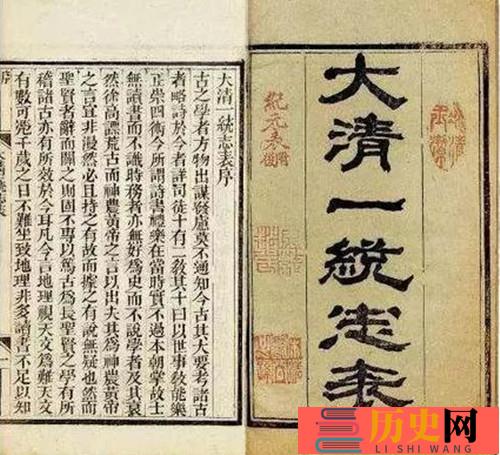 大清一統志表
紀元表附
大清一統志表序
古之學者方物出謀發慮莫不通知今古其大要考諸古
者略詩於今者詳司徒十有二教其十曰以世事教能樂
正崇四術今所謂詩書禮樂在當時實不過本朝掌故士
無讀書而不識時務者亦無好為史而不說學者及其衰
然徐高譚荒古而神農黃帝之言以出夫其為神農黃帝
之言宜非漫然必且持之有故而據之有說無疑也然而
聖賢者辭而闢之則固不專以篤古為長聖賢之學有所
稽諸古亦有所效於今耳凡今言地理視天文為難天文
有數可 千歲之日不難坐致地理非多讀書不足以知
历史网
LI SHI WANG